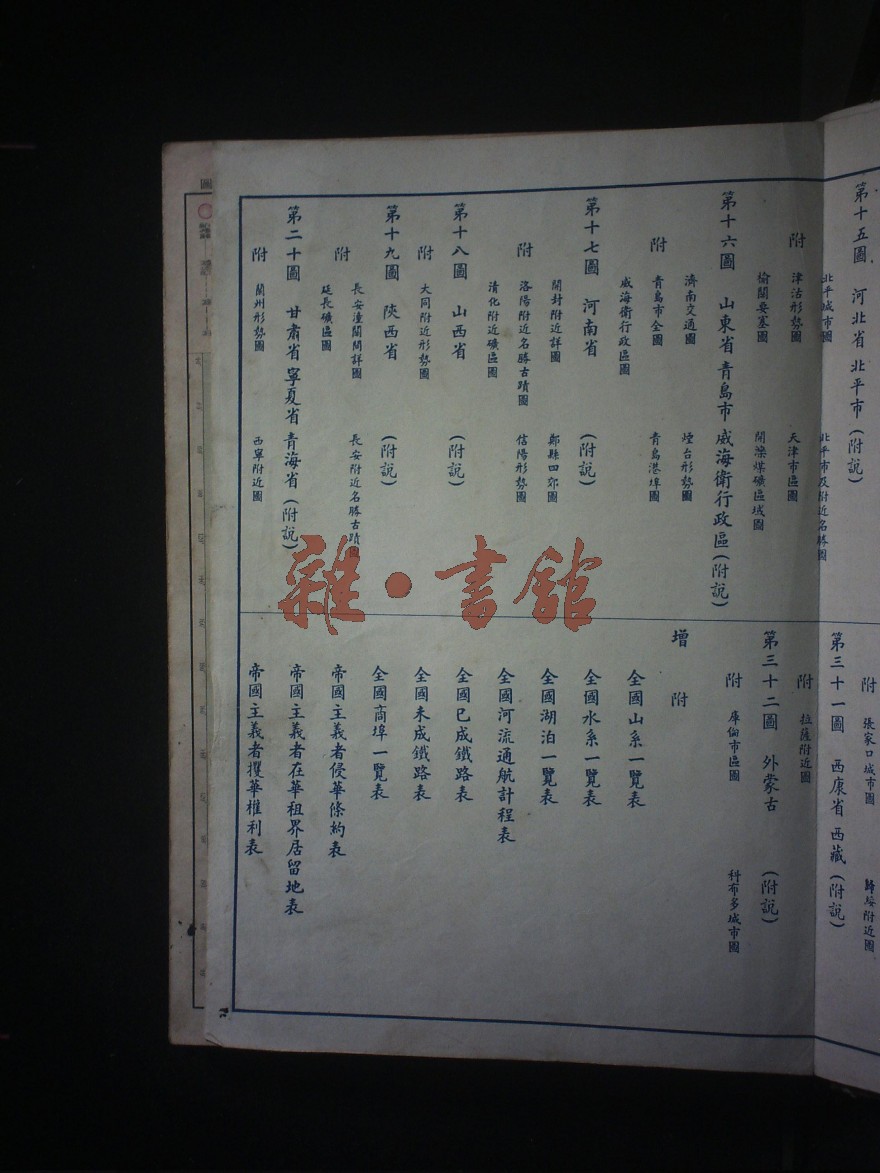 第十五圖 河北省 北平市 (附說)
北平城市圖 北平市及附近名勝圖
附 津沽形勢圖 天津市區圖
榆關要塞圖 開灤煤礦區域圖
第十六圖 山東省 青島市 威海衛行政區 (附說)
濟南交通圖 煙台形勢圖
附 青島市全圖 青島港埠圖
威海衛行政區圖
第十七圖 河南省 (附說)
開封附近詳圖 鄭縣四郊圖
附 洛陽附近名勝古蹟圖 信陽形勢圖
清化附近礦區圖
第十八圖 山西省 (附說)
附 大同附近形勢圖
第十九圖 陝西省 (附說)
長安潼關間詳圖 長安附近名勝古蹟圖
附
延長礦區圖
第二十圖 甘肅省 寧夏省 青海省 (附說)
附 蘭州形勢圖 西寧附近圖
附 張家口城市圖 歸綏附近圖
第三十一圖 西康省 西藏 (附說)
附 拉薩附近圖
第三十二圖 外蒙古 (附說)
附 庫倫市區圖 科布多城市圖
增附
全國山系一覽表
全國水系一覽表
全國湖泊一覽表
全國河流通航計程表
全國已成鐵路表
全國未成鐵路表
全國商埠一覽表
帝國主義者侵華條約表
帝國主義者在華租界居留地表
帝國主義者攫華權利表
雜·書館